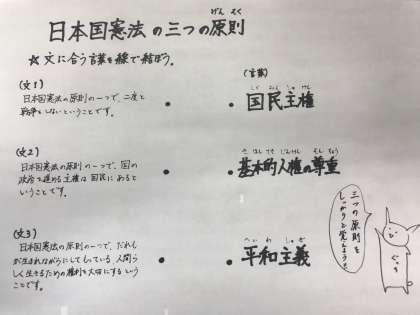 げん そく
日本国憲法の三つの原則
☆ 文に合う言葉を線で結ぼう。
(文1)
日本国憲法の原則の一つで、二度と
戦争をしないということです。
(文2)
日本国憲法の原則の一つで、国の
政治を進める主権は国民にあると
いうことです。
(文3)
日本国憲法の原則の一つで、だれも
が生まれながらにしてもっている、人間ら
しく生きるための権利を大切にするという
ことです。
(言葉)
こく みん しゅ けん
国民主権
き ほんてき じんけん そんちょう
基本的人権の尊重
へい わ しゅ ぎ
平和主義
三つの原則を
しっかりと覚えようね